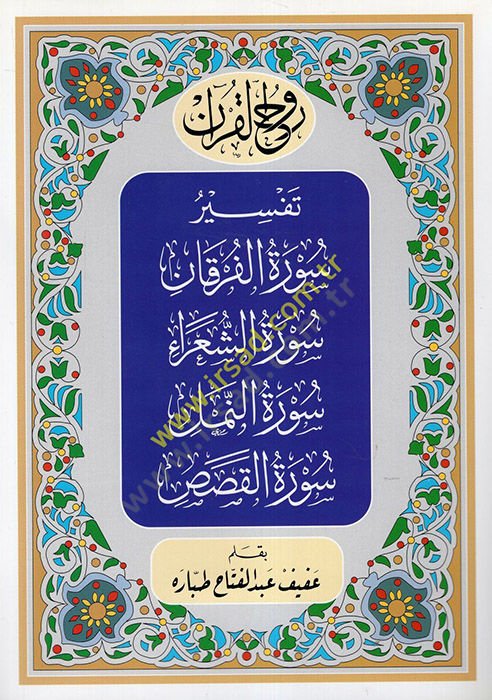 روح القرآن
تَفْسِيرُ
سُورَةُ الْفُرْقَانِ
سُورَةُ الشُّعَرَاءِ
سُورَةُ النَّمْلِ
سُورَةُ الْقَصَصِ
بقلم
عفيف عبد الفتاح طباره
www.irsad.com.tr